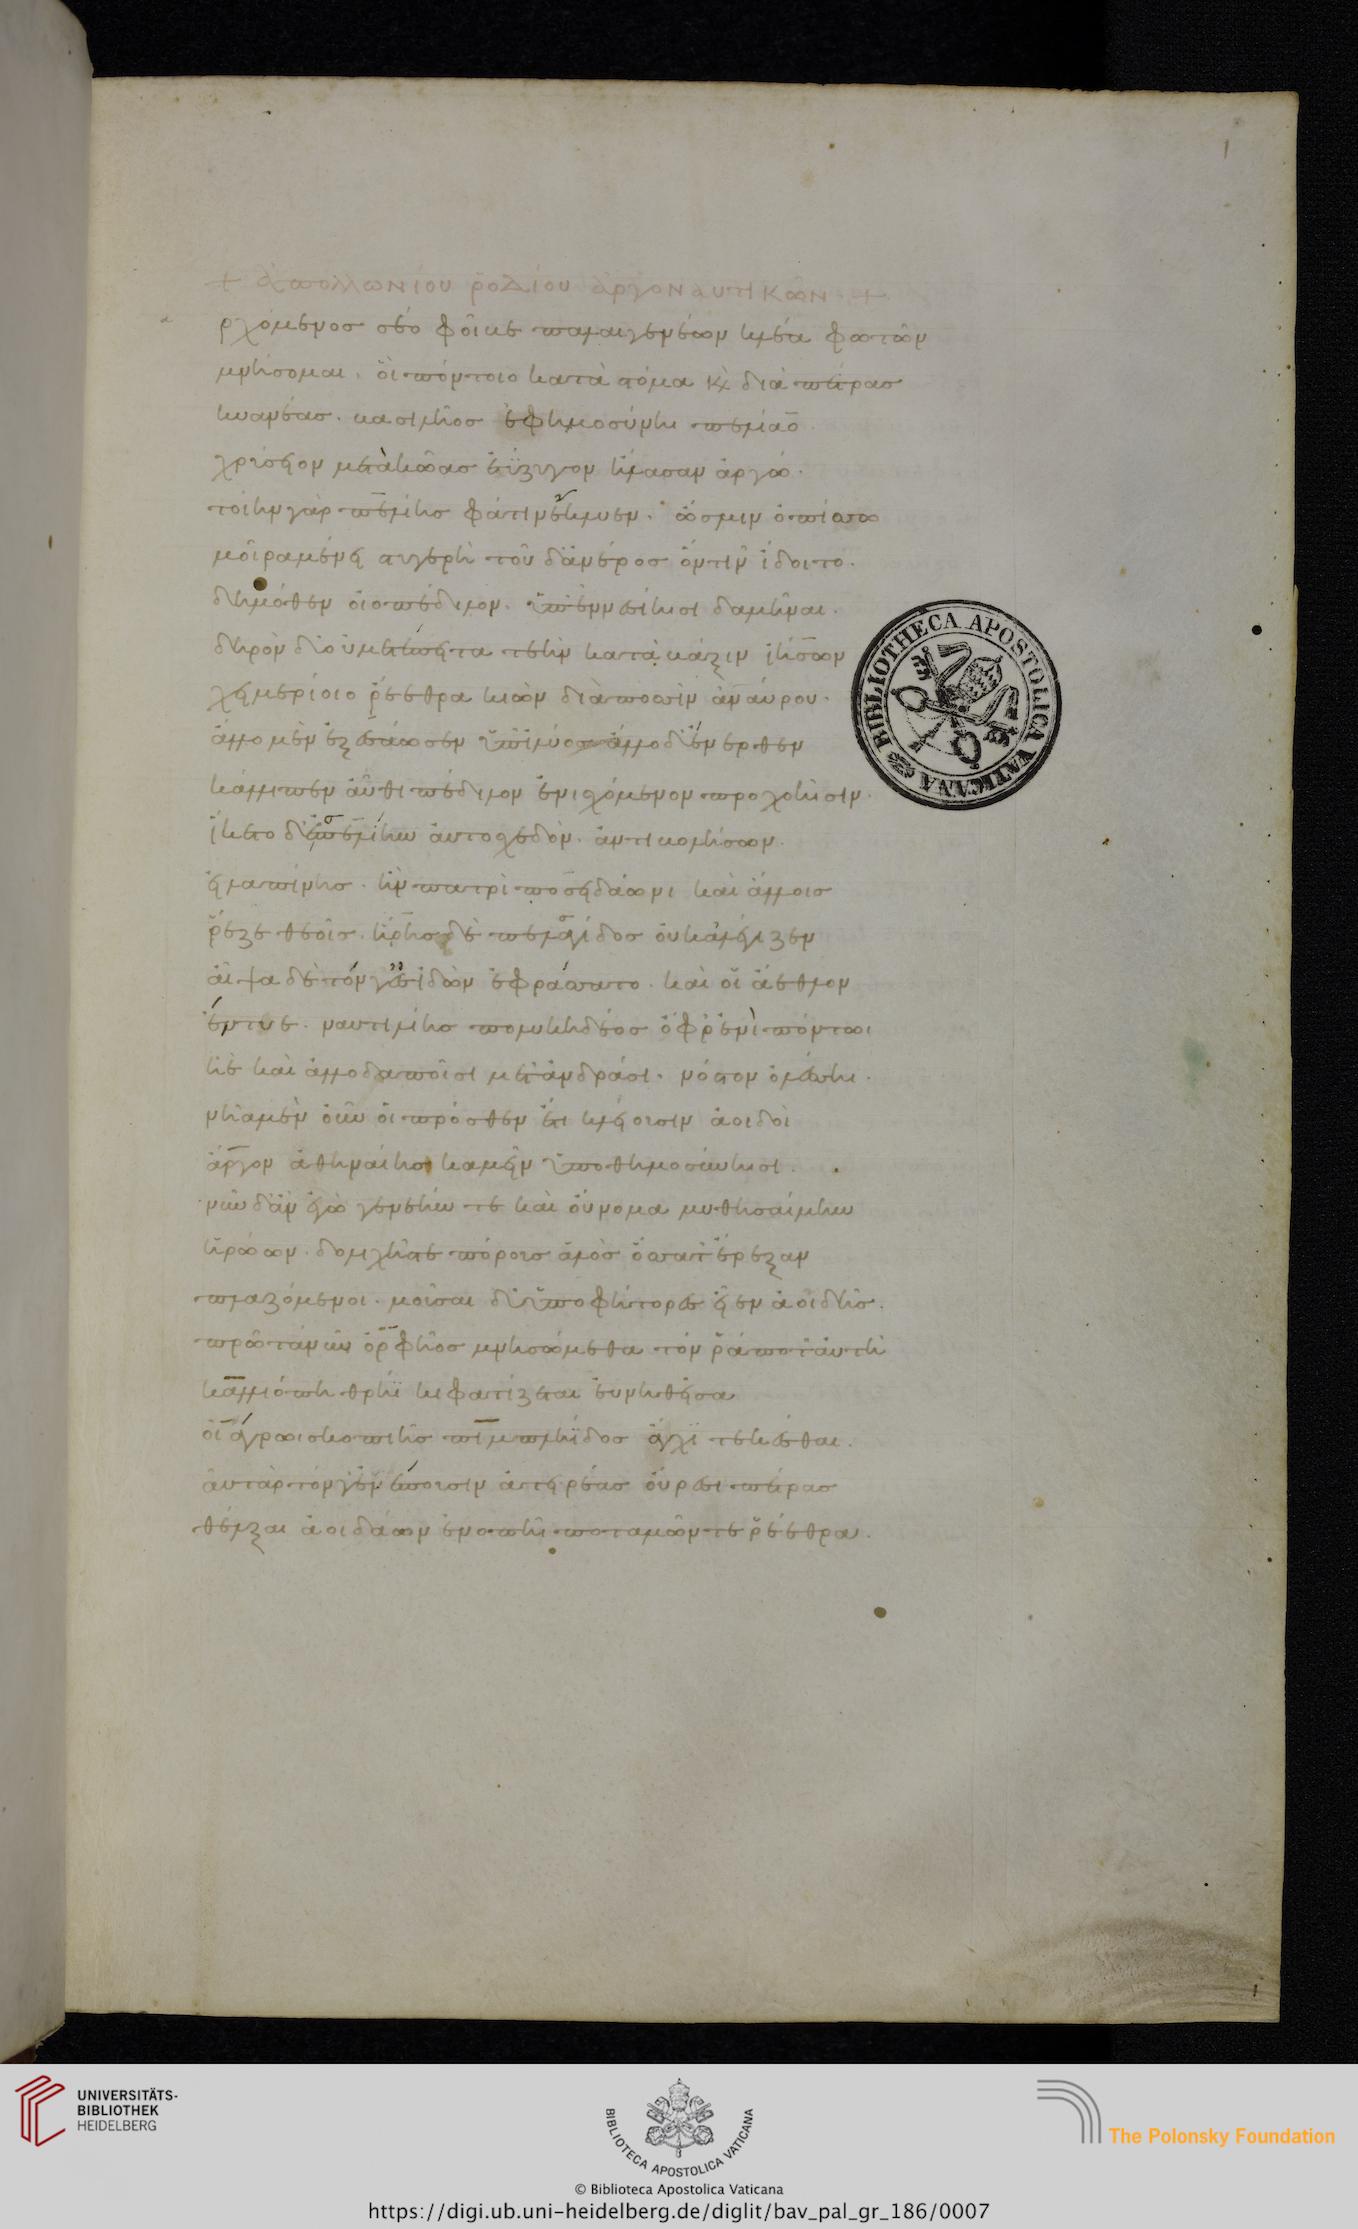 1
+ ἀπολλωνίου ῥοδίου ἀργοναυτικῶν +
ρχόμενος σέο φοῖβε παλαιγενέων κλέα φωτῶν
μνήσομαι. οἳ πόντοιο κατὰ στόμα κ διὰ πέτρας
κυανέας. βασιλῆος ἐφημοσύνη πελίαο
χρύσειον μετὰ κῶας ἐΰζυγον ἤλασαν ἀργώ.
τοίην γὰρ πελίης φάτιν ἔκλυεν. ὥς μιν ὀπίσσω
μοῖρα μένει στυγερὴ τοῦ δ' ἀνέρος ὅντιν ἴδοιτο.
δημόθεν οἰοπέδιλον. ὑπ' ἐννεσίηισι δαμῆναι.
δηρὸν δ' οὐ μετέπειτα τεὴν κατὰ βάξιν ἰήσων
χειμερίοιο ῥέεθρα κιὼν διὰ ποσσὶν ἀναύρου.
ἄλλο μὲν ἐξεσάωσεν ὑπ' ἰλύος ἄλλο δ' ἔνερθεν
κάλλιπεν αὖθι πέδιλον ἐνισχόμενον προχοῆισιν.
ἵκετο δ' ἐς πελίην αὐτοσχεδὸν. ἀντιβολήσων.
εἰλαπίνης. ἣν πατρὶ ποσειδάωνι καὶ ἄλλοις
ῥέζε θεοῖς. ἥρης δὲ πελασγίδος οὐκ ἀλέγιζεν
αἶψα δὲ τόν γ' ἐσιδὼν ἐφράσσατο. καὶ οἱ ἄεθλον
ἔντυε. ναυτιλίης πολυκηδέος ὄφρ' ἐνὶ πόντωι
ἠὲ καὶ ἀλλοδαποῖσι μετ' ἀνδράσι. νόστον ὀλέσσηι.
νῆα μὲν οὖν οἱ πρόσθεν ἔτι κλείουσιν ἀοιδοὶ
ἄργον ἀθηναίης καμεῖν ὑποθημοσύνηισι.
νῦν δ' ἂν ἐγὼ γενεήν τε καὶ οὔνομα μυθησαίμην
ἡρώων. δολιχῆς τε πόρους ἁλὸς ὅσσα τ' ἔρεξαν
πλαζόμενοι. μοῦσαι δ' ὑποφήτορες εἶεν ἀοιδῆς.
πρῶτά νυν ὀρφῆος μνησώμεθα τόν ῥά ποτ' αὐτὴ
καλλιόπη θρήϊκι φατίζεται εὐνηθεῖσα
οἰάγρωι σκοπιῆς πιμπληΐδος ἄγχι τεκέσθαι.
αὐτὰρ τόν γ' ἐνέπουσιν ἀτειρέας οὔρεσι πέτρας
θέλξαι ἀοιδάων ἐνοπῆι ποταμῶν τε ῥέεθρα.
BIBLIOTHECA APOSTOLICA VATICANA
1
UNIVERSITÄTS-
BIBLIOTHEK
HEIDELBERG
BIBLIOTECA APOSTOLICA VATICANA
The Polonsky Foundation
© Biblioteca Apostolica Vaticana
https://digi.ub.uni-heidelberg.de/diglit/bav_pal_gr_186/0007